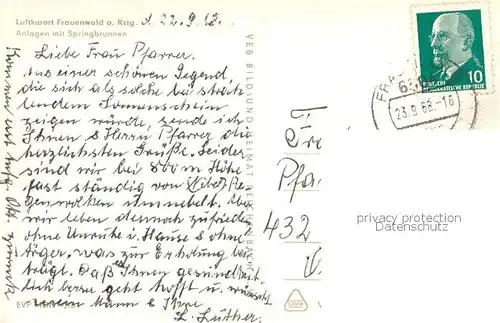 Luftkurort Frauenwald a. Rstg.
Anlagen mit Springbrunnen
d. 22.9.68.
Liebe Frau Pfarrer.
Aus einer schönen Gegend,
die sich als solche bei strah-
lendem Sonnenschein
zeigen würde, sende ich
Ihnen u Herrn Pfarrer die
herzlichsten Grüße. Leider
sind wir bei 800 m Höhe
fast ständig von Nebel, Re-
genwolken umnebelt. Aber
wir leben dennoch zufrieden
ohne Unruhe i. Hause u ohne
Ärger, was zur Erholung bei-
trägt. Daß Ihnen gesundheit-
lich besser geht hofft u. wünscht
mein Mann u Ihre
L. Luther.
Kommen erst Anfg. Okt. zurück
VEB BILD UND HEIMAT REICHENBACH
EVP
DEUTSCHE
DEMOKRATISCHE REPUBLIK
10
23.9.68-16
Pfa
432
privacy protection
Datenschutz